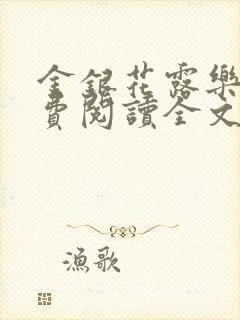 金銀花露樂
費閱讀全文
漁歌